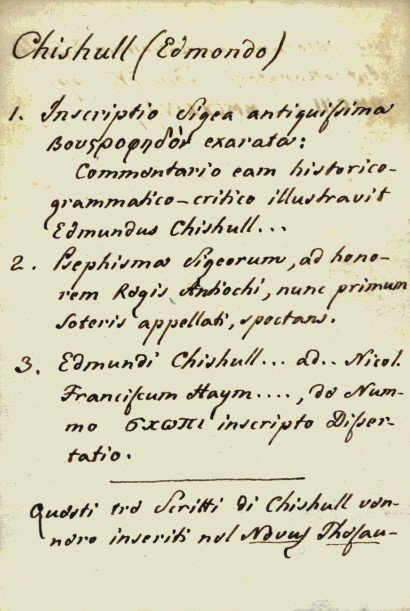 Chishull (Edmondo)
1. Inscriptio Sigea antiquissima
Βουςροφηδὸν exarata:
Commentario eam historico-
grammatico-critico illustravit
Edmundus Chishull...
2. Psephisma Sigeorum, ad hono-
rem Regis Antiochi, nunc primum
Soteris appellati, spectans.
3. Edmundi Chishull... ad.. Nicol.
Franciscum Haym...., de Num-
mo σχωπι inscripto Disser-
tatio.
Questi tre Scritti di Chishull ven-
nero inseriti nel Novus Thesau-